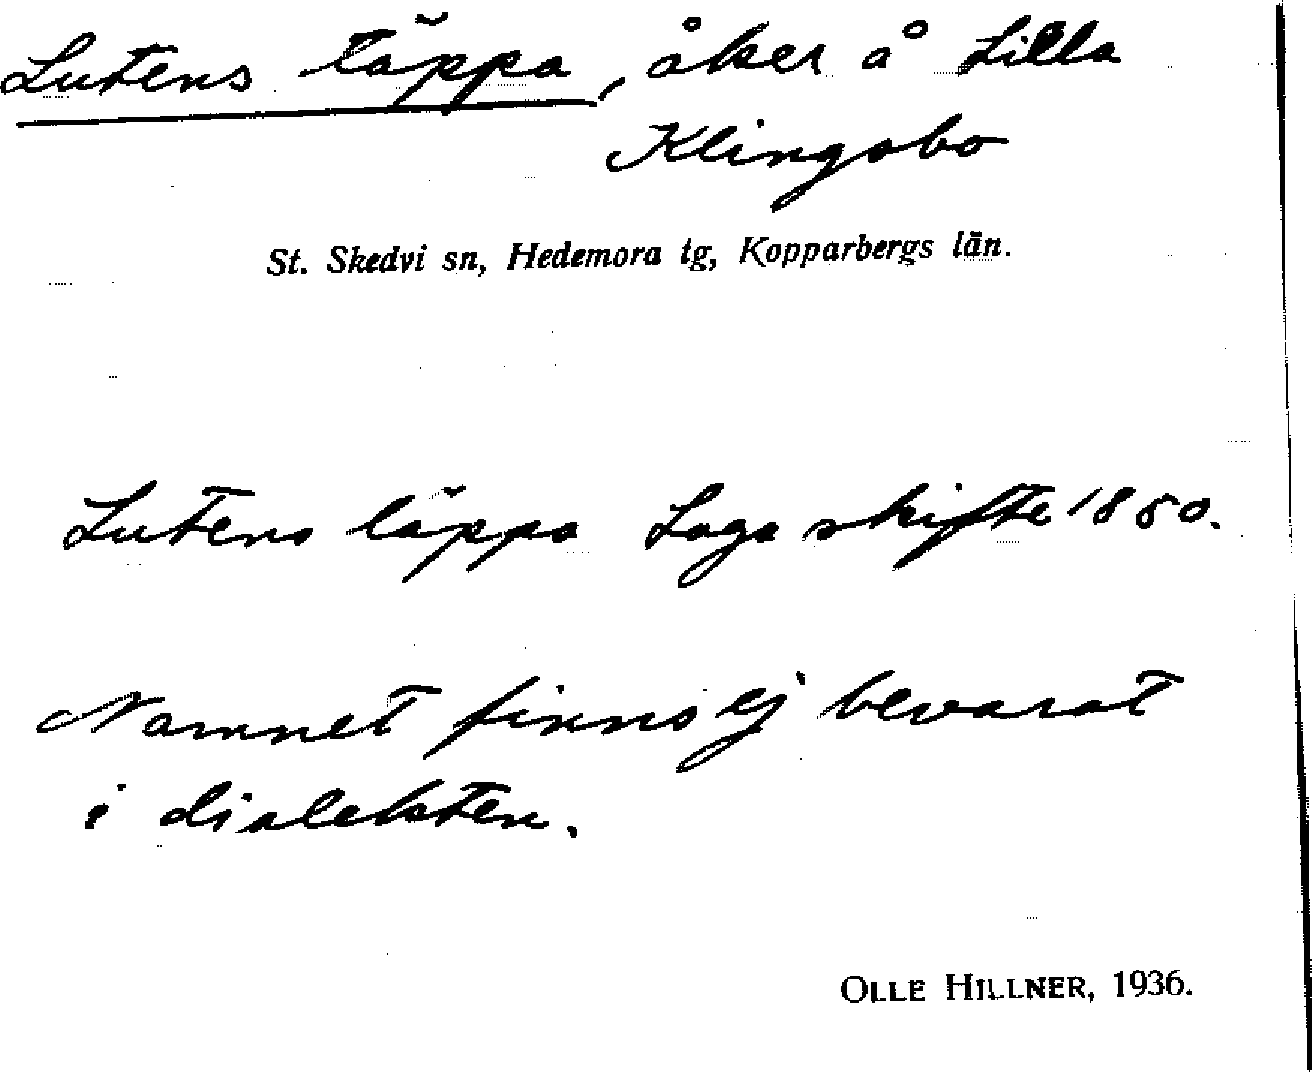 Lutens täppa, åker å Lilla
Klingsbo
St. Skedvi sn, Hedemora tg, Kopparbergs län.
Lutens täppa Laga skifte 1850.
Namnet finns ej bevarat
i dialekten.
OLLE HILLNER, 1936.